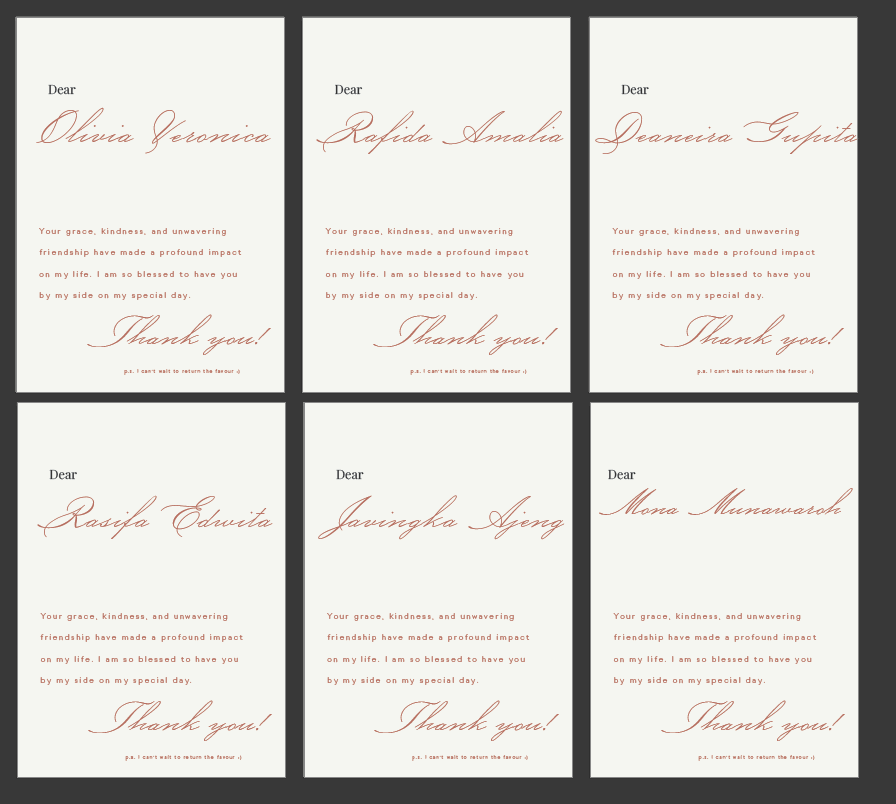 Dear
Olivia Veronica
Your grace, kindness, and unwavering
friendship have made a profound impact
on my life. I am so blessed to have you
by my side on my special day.
Thank you!
p.s. I can't wait to return the favour :)
Dear
Rafida Amalia
Your grace, kindness, and unwavering
friendship have made a profound impact
on my life. I am so blessed to have you
by my side on my special day.
Thank you!
p.s. I can't wait to return the favour :)
Dear
Deaneira Gupita
Your grace, kindness, and unwavering
friendship have made a profound impact
on my life. I am so blessed to have you
by my side on my special day.
Thank you!
p.s. I can't wait to return the favour :)
Dear
Rasifa Edwita
Your grace, kindness, and unwavering
friendship have made a profound impact
on my life. I am so blessed to have you
by my side on my special day.
Thank you!
p.s. I can't wait to return the favour :)
Dear
Javingka Ajeng
Your grace, kindness, and unwavering
friendship have made a profound impact
on my life. I am so blessed to have you
by my side on my special day.
Thank you!
p.s. I can't wait to return the favour :)
Dear
Mona Munawaroh
Your grace, kindness, and unwavering
friendship have made a profound impact
on my life. I am so blessed to have you
by my side on my special day.
Thank you!
p.s. I can't wait to return the favour :)